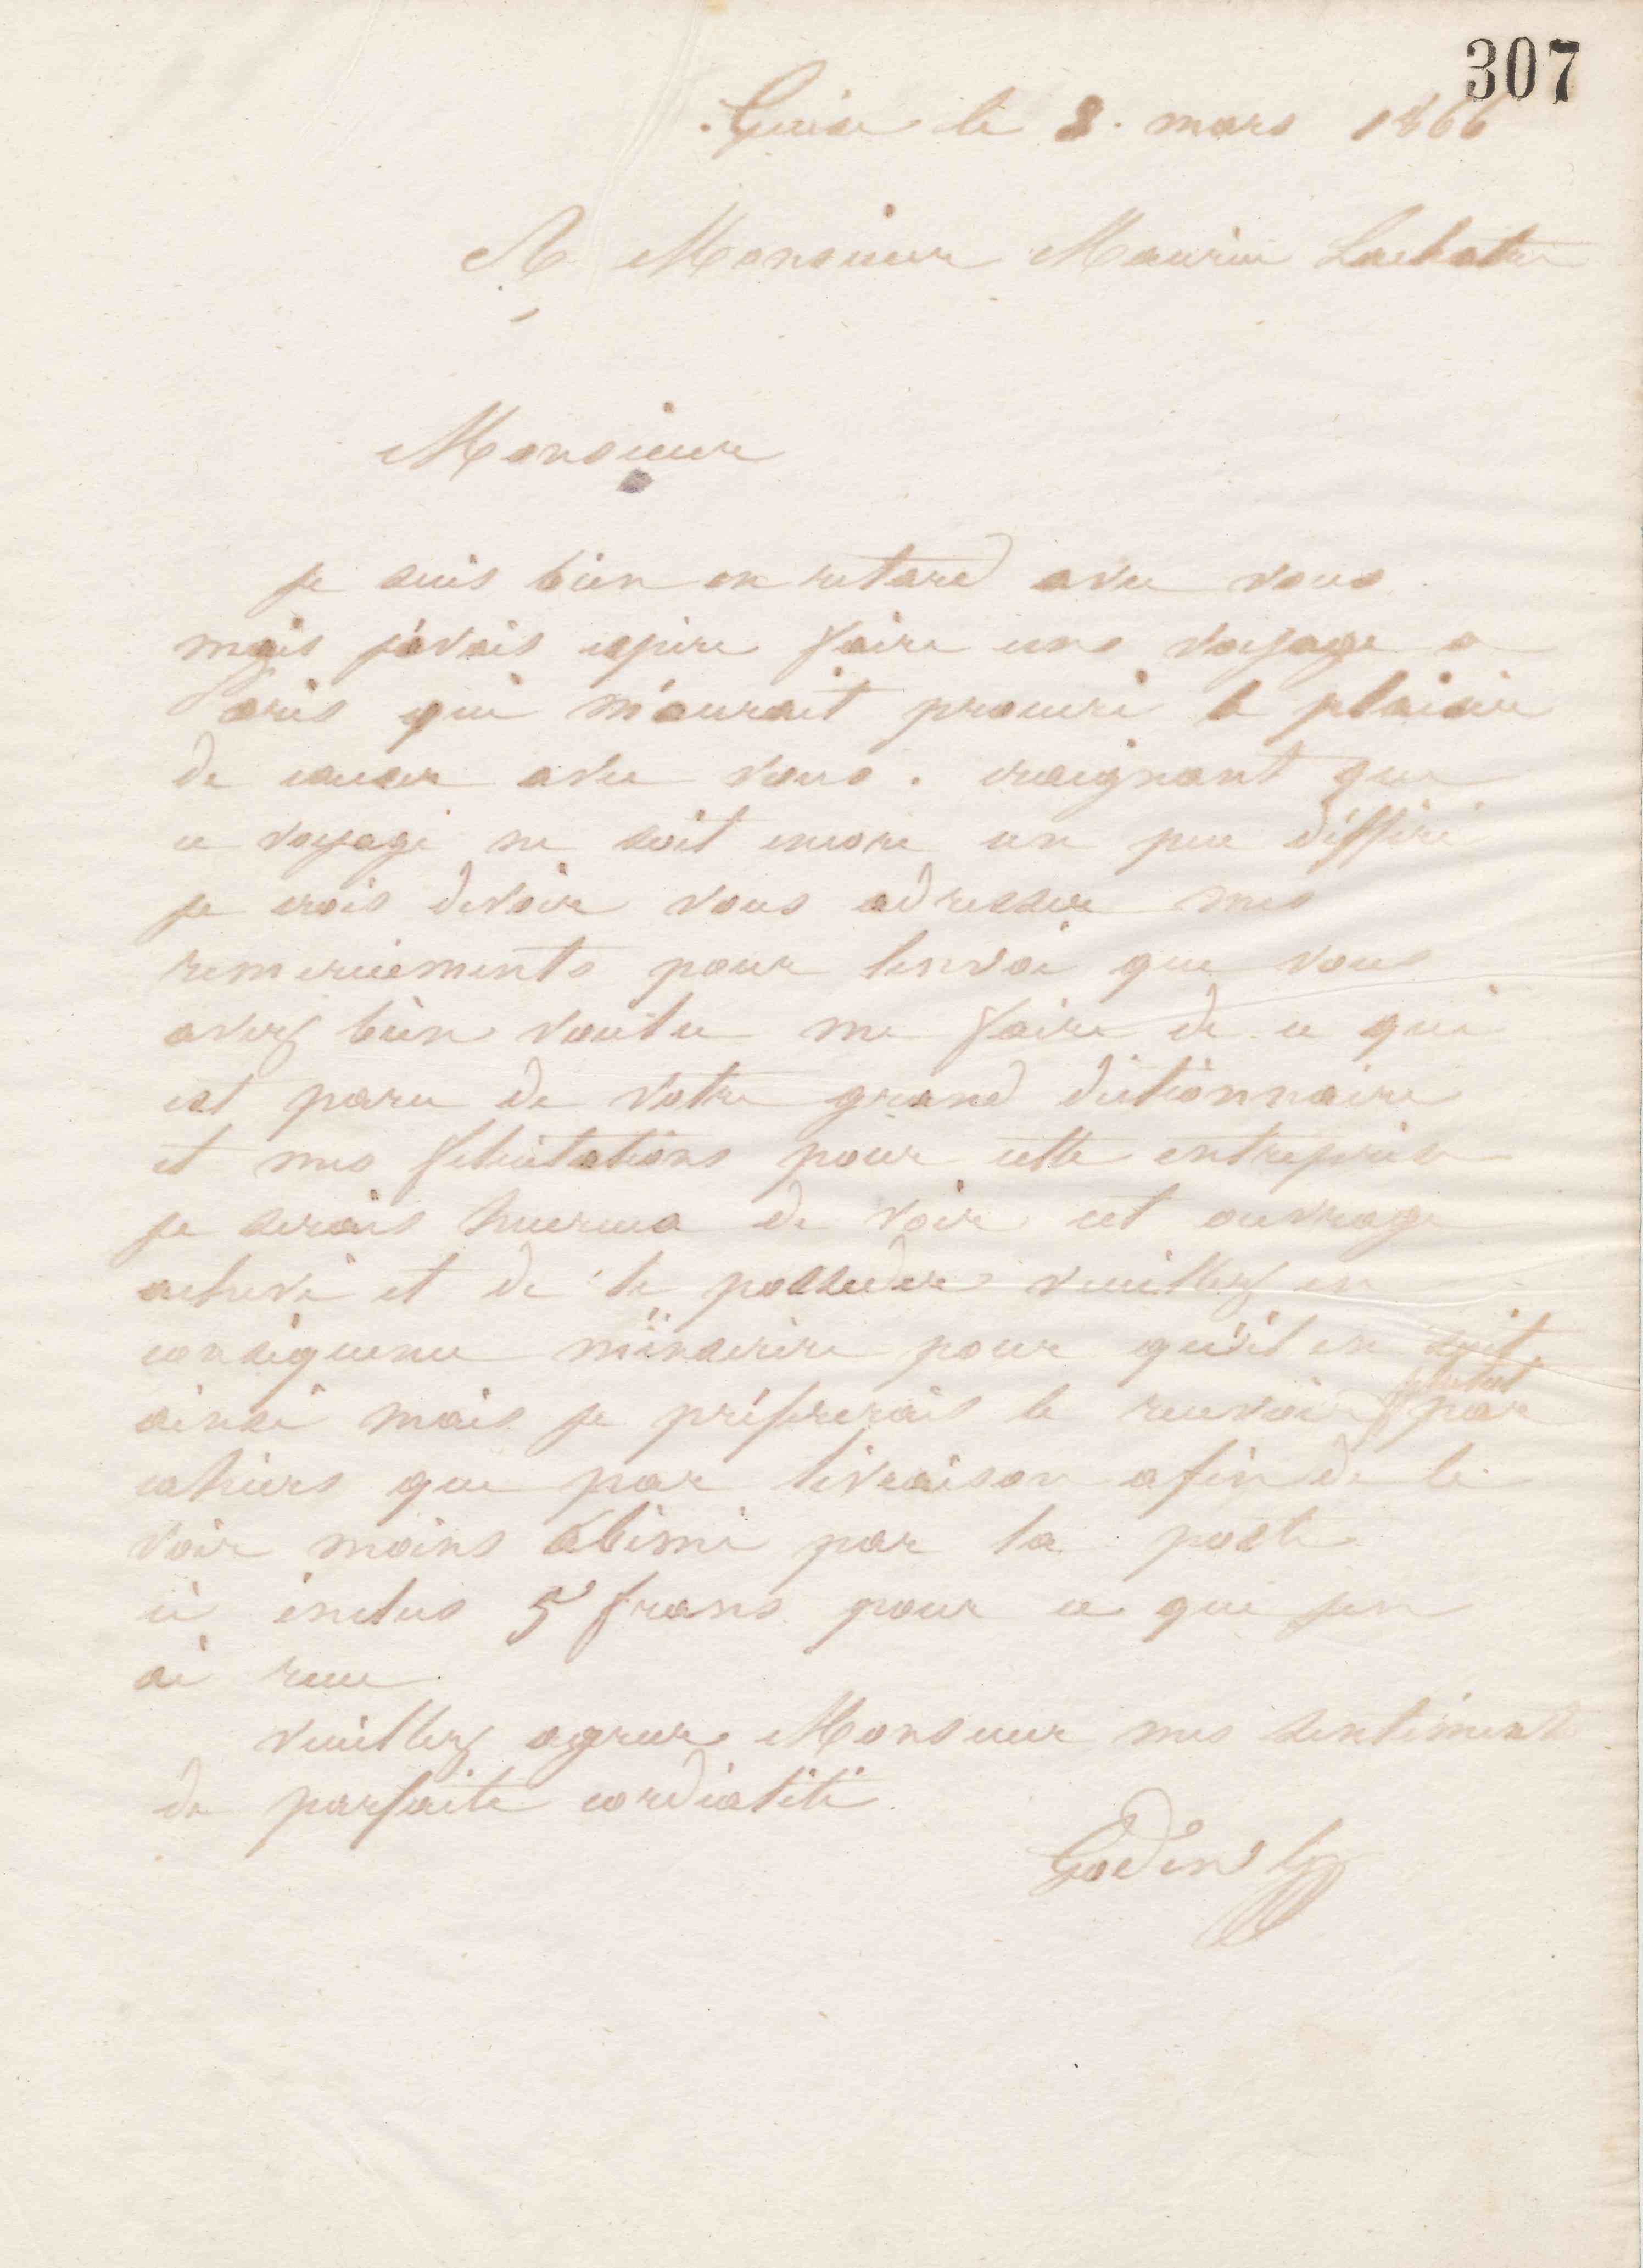 307
Guise le 8. mars 1866
A Monsieur Maurice Lachatre
Monsieur
je suis bien en retard avec vous
mais j'avais espéré faire une voyage a
Paris qui m'aurait procuré le plaisir
de causer avec vous. craignant que
ce voyage ne soit encore un peu différé
je crois devoir vous adresser mes
remerciements pour lenvoi que vous
avez bien voulu me faire de ce qui
est paru de votre grand dictionnaire
et mes félicitations pour cette entreprise
je serais heureux de voir cet ouvrage
achevé et de le posseder veuillez en
conséquence m'inscrire pour qu'il en soit
ainsi mais je préfererais le recevoir plutot par
cahiers que par livraison afin de le
voir moins abimé par la poste
ci inclus 5 francs pour ce que jen
ai recu
veuillez agreer Monsieur mes sentiments
de parfaite cordialité
Godin